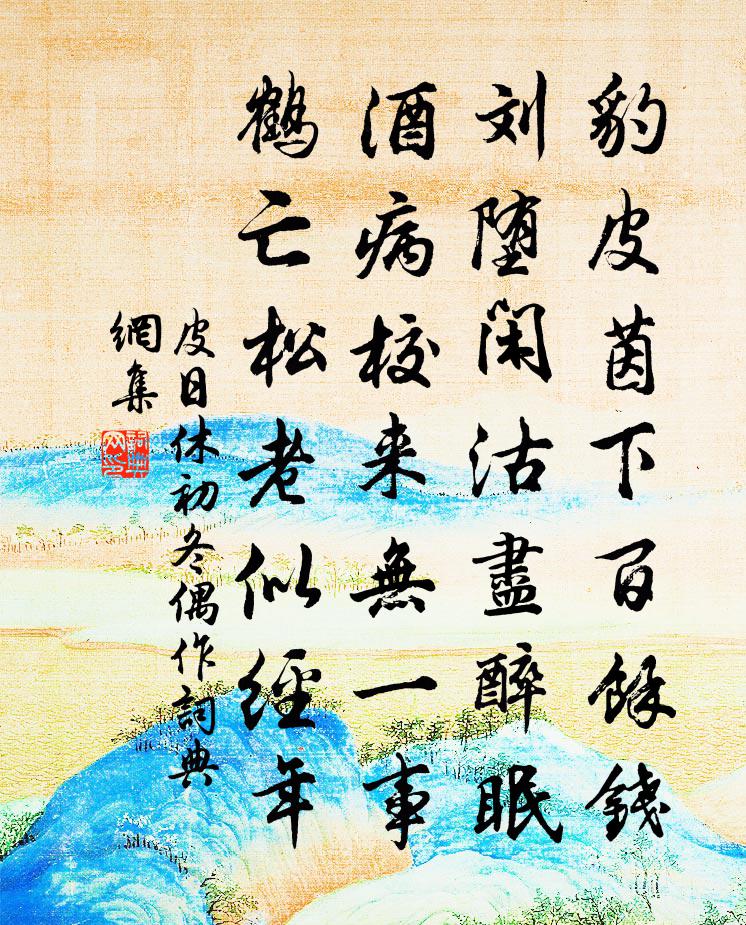 豹皮茵下百餘錢
刘墮閑沽盡醉眠
酒病校来無一事
鶴亡松老似經年
皮日休初冬偶作詞典
網集